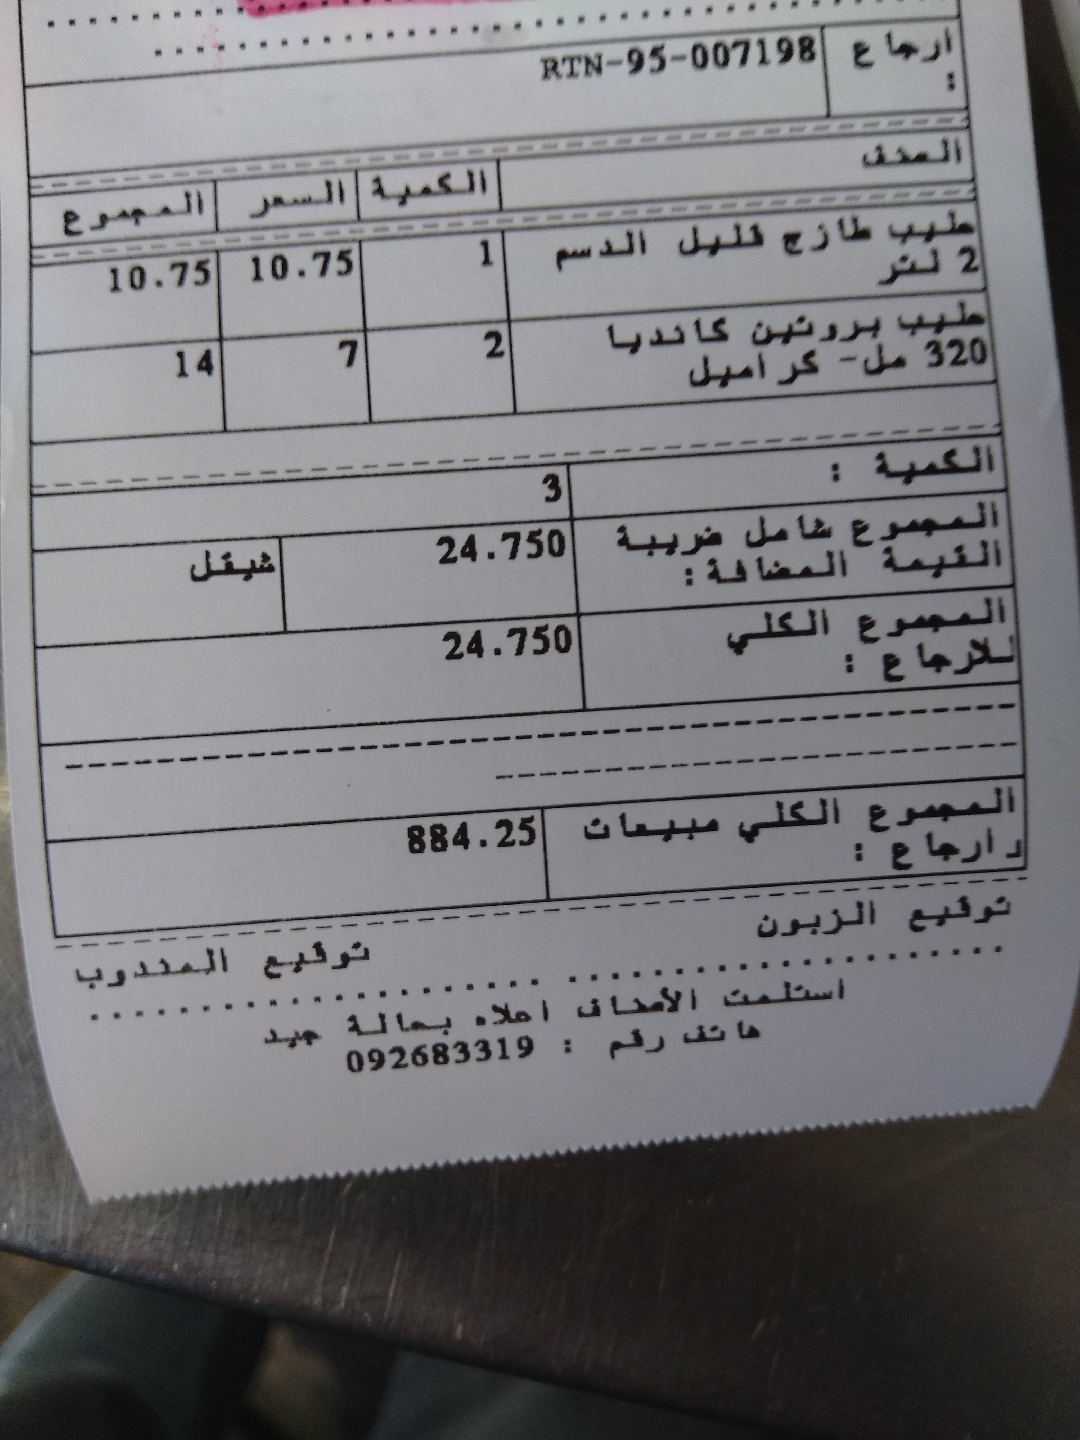 ارجاع : RTN-95-007198
الصنف الكمية السعر المجموع
حليب طازج قليل الدسم 2 لتر 1 10.75 10.75
حليب بروتين كانديا 320 مل- كراميل 2 7 14
الكمية : 3
المجموع شامل ضريبة القيمة المضافة: 24.750 شيقل
المجموع الكلي للارجاع : 24.750
المجموع الكلي مبيعات وارجاع : 884.25
توقيع الزبون توقيع المندوب
استلمت الأصناف اعلاه بحالة جيد
هاتف رقم : 092683319